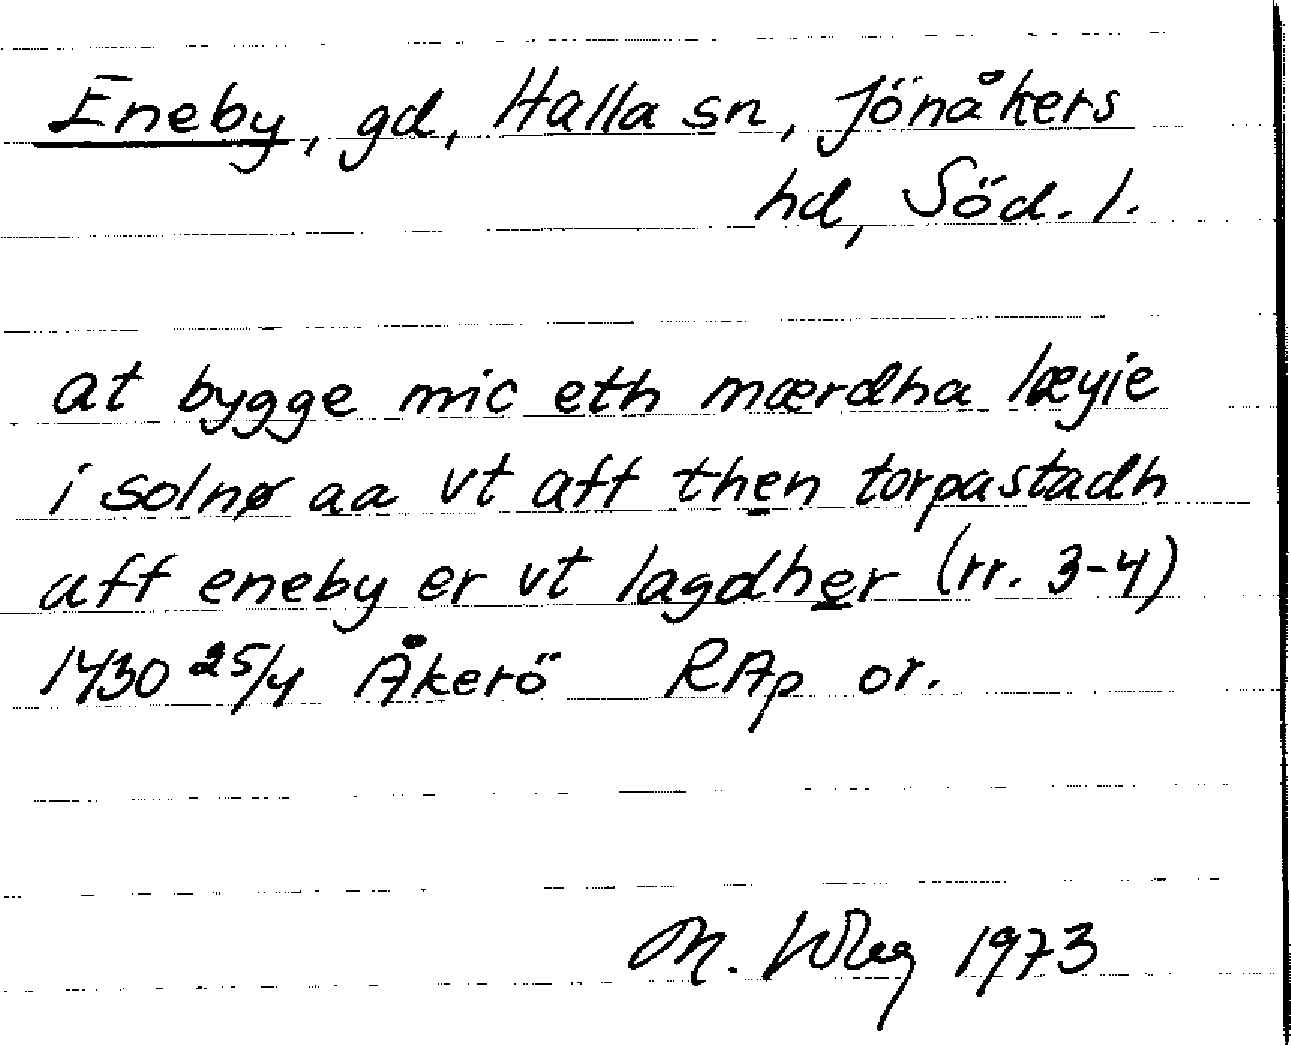 Eneby, gd, Halla sn, Jönåkers
hd, Söd. l.
at bygge mic eth mærdha læyie
i solnø aa vt aff then torpastadh
aff eneby er vt lagdher (rr. 3-4)
1430 25/4 Åkerö RAp or.
M. 1973